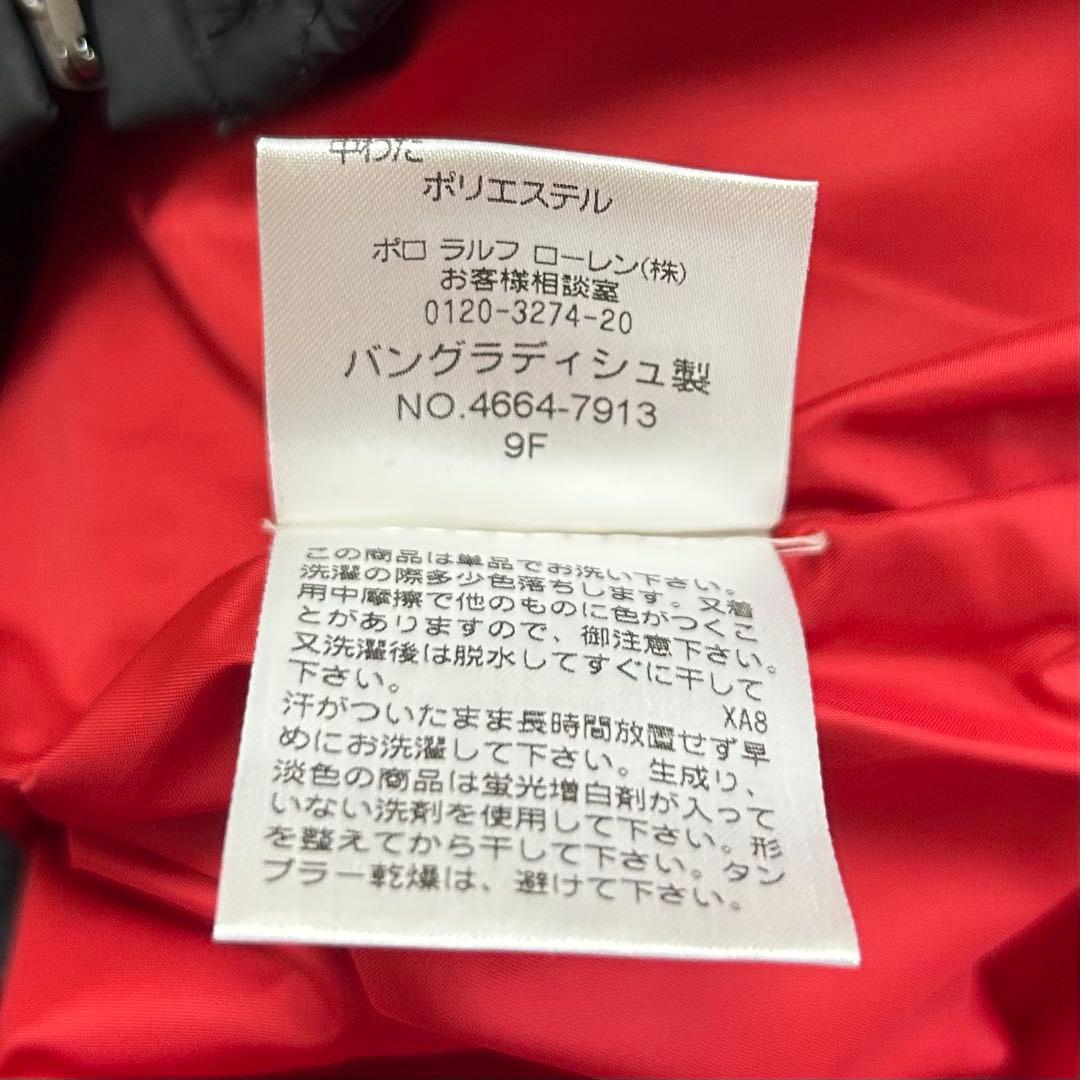 中わた
ポリエステル
ポロ ラルフ ローレン(株)
お客様相談室
0120-3274-20
バングラディシュ製
NO.4664-7913
9F
この商品は単品でお洗い下さい。
洗濯の際多少色落ちします。又着
用中摩擦で他のものに色がつくこ
とがありますので、御注意下さい。
又洗濯後は脱水してすぐに干して
下さい。
XA8
汗がついたまま長時間放置せず早
めにお洗濯して下さい。生成り、
淡色の商品は蛍光増白剤が入って
いない洗剤を使用して下さい。形
を整えてから干して下さい。タン
ブラー乾燥は、避けて下さい。